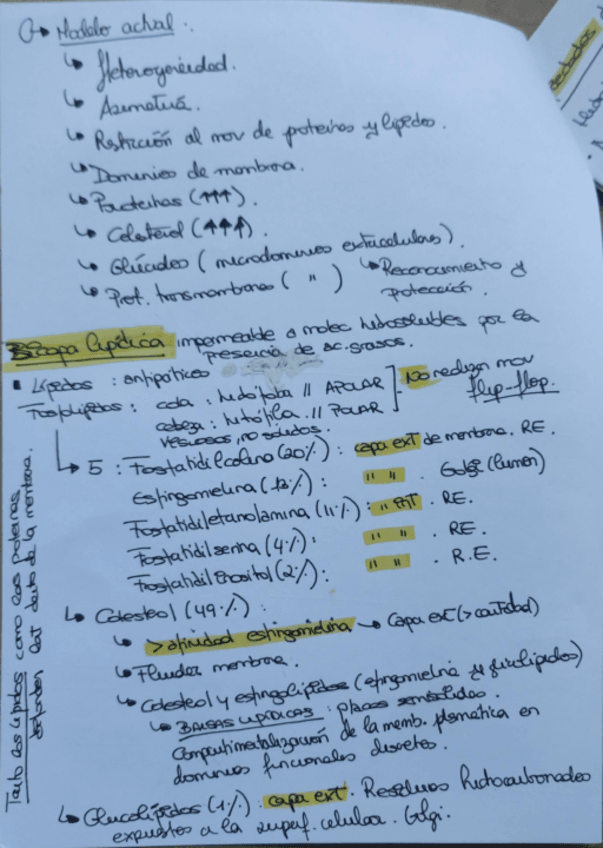 Modelo actual:
↳ Heterogeneidad.
↳ Asimetría.
↳ Restricción al mov de proteínas y lípidos.
↳ Dominios de membrana.
↳ Proteínas (↑↑↑).
↳ Colesterol (↑↑↑).
↳ Glúcidos (microdominios extracelulares).
↳ Reconocimiento y protección.
↳ Prot. transmembrana ( " )
Bicapa lipídica impermeable a molec hidrosolubles por la
presencia de ac. grasos.
▪ Lípidos : antipáticos
Fosfolípidos : cola : hidrófoba // APOLAR
cabeza : hidrófila // POLAR
No realizan mov
flip-flop.
viscosos, no sólidos.
↳ 5 : Fosfatidilcolina (20%) : capa ext de membrana. RE.
Esfingomielina (12%) : " " . Golgi (lumen)
Fosfatidiletanolamina (11%) : " int . RE.
Fosfatidilserina (4%) : " " . RE.
Fosfatidilinositol (2%) : " " . R.E.
↳ Colesterol (49%) :
↳ > afinidad esfingomielina → capa ext (> cantidad)
↳ Fluidez membrana.
↳ Colesterol y esfingolípidos (esfingomielina y glucolípidos)
↳ BALSAS LIPÍDICAS : placas semisólidas.
Compartimentalización de la memb. plasmática en
dominios funcionales discretos.
↳ Glucolípidos (1%) : capa ext. Residuos hidrocarbonados
expuestos a la superf. celular. Golgi.
Tanto los lípidos como las proteínas
difunden lat dentro de la membrana.